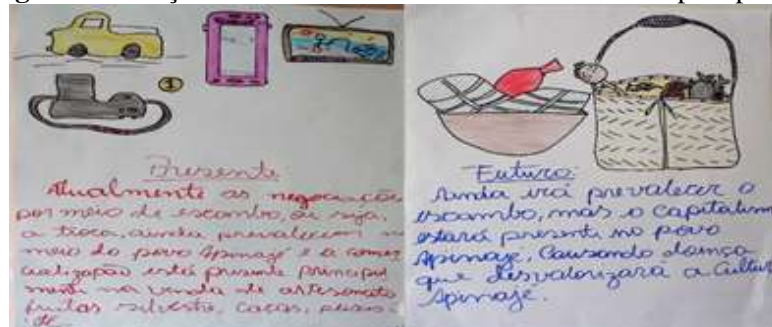 Presente
Atualmente as negociações
por meio de escambo, ou seja,
a troca, ainda prevalecem no
meio do povo Apinajé e a comer
cialização está presente principal
mente na venda de artesanato
frutas silvestre, caças, peixes
etc.
Futuro:
Ainda irá prevalecer o
escambo, mas o capitalism
estará presente no povo
Apinaje, causando doença
que desvalorizara a Cultur
Apinaje.